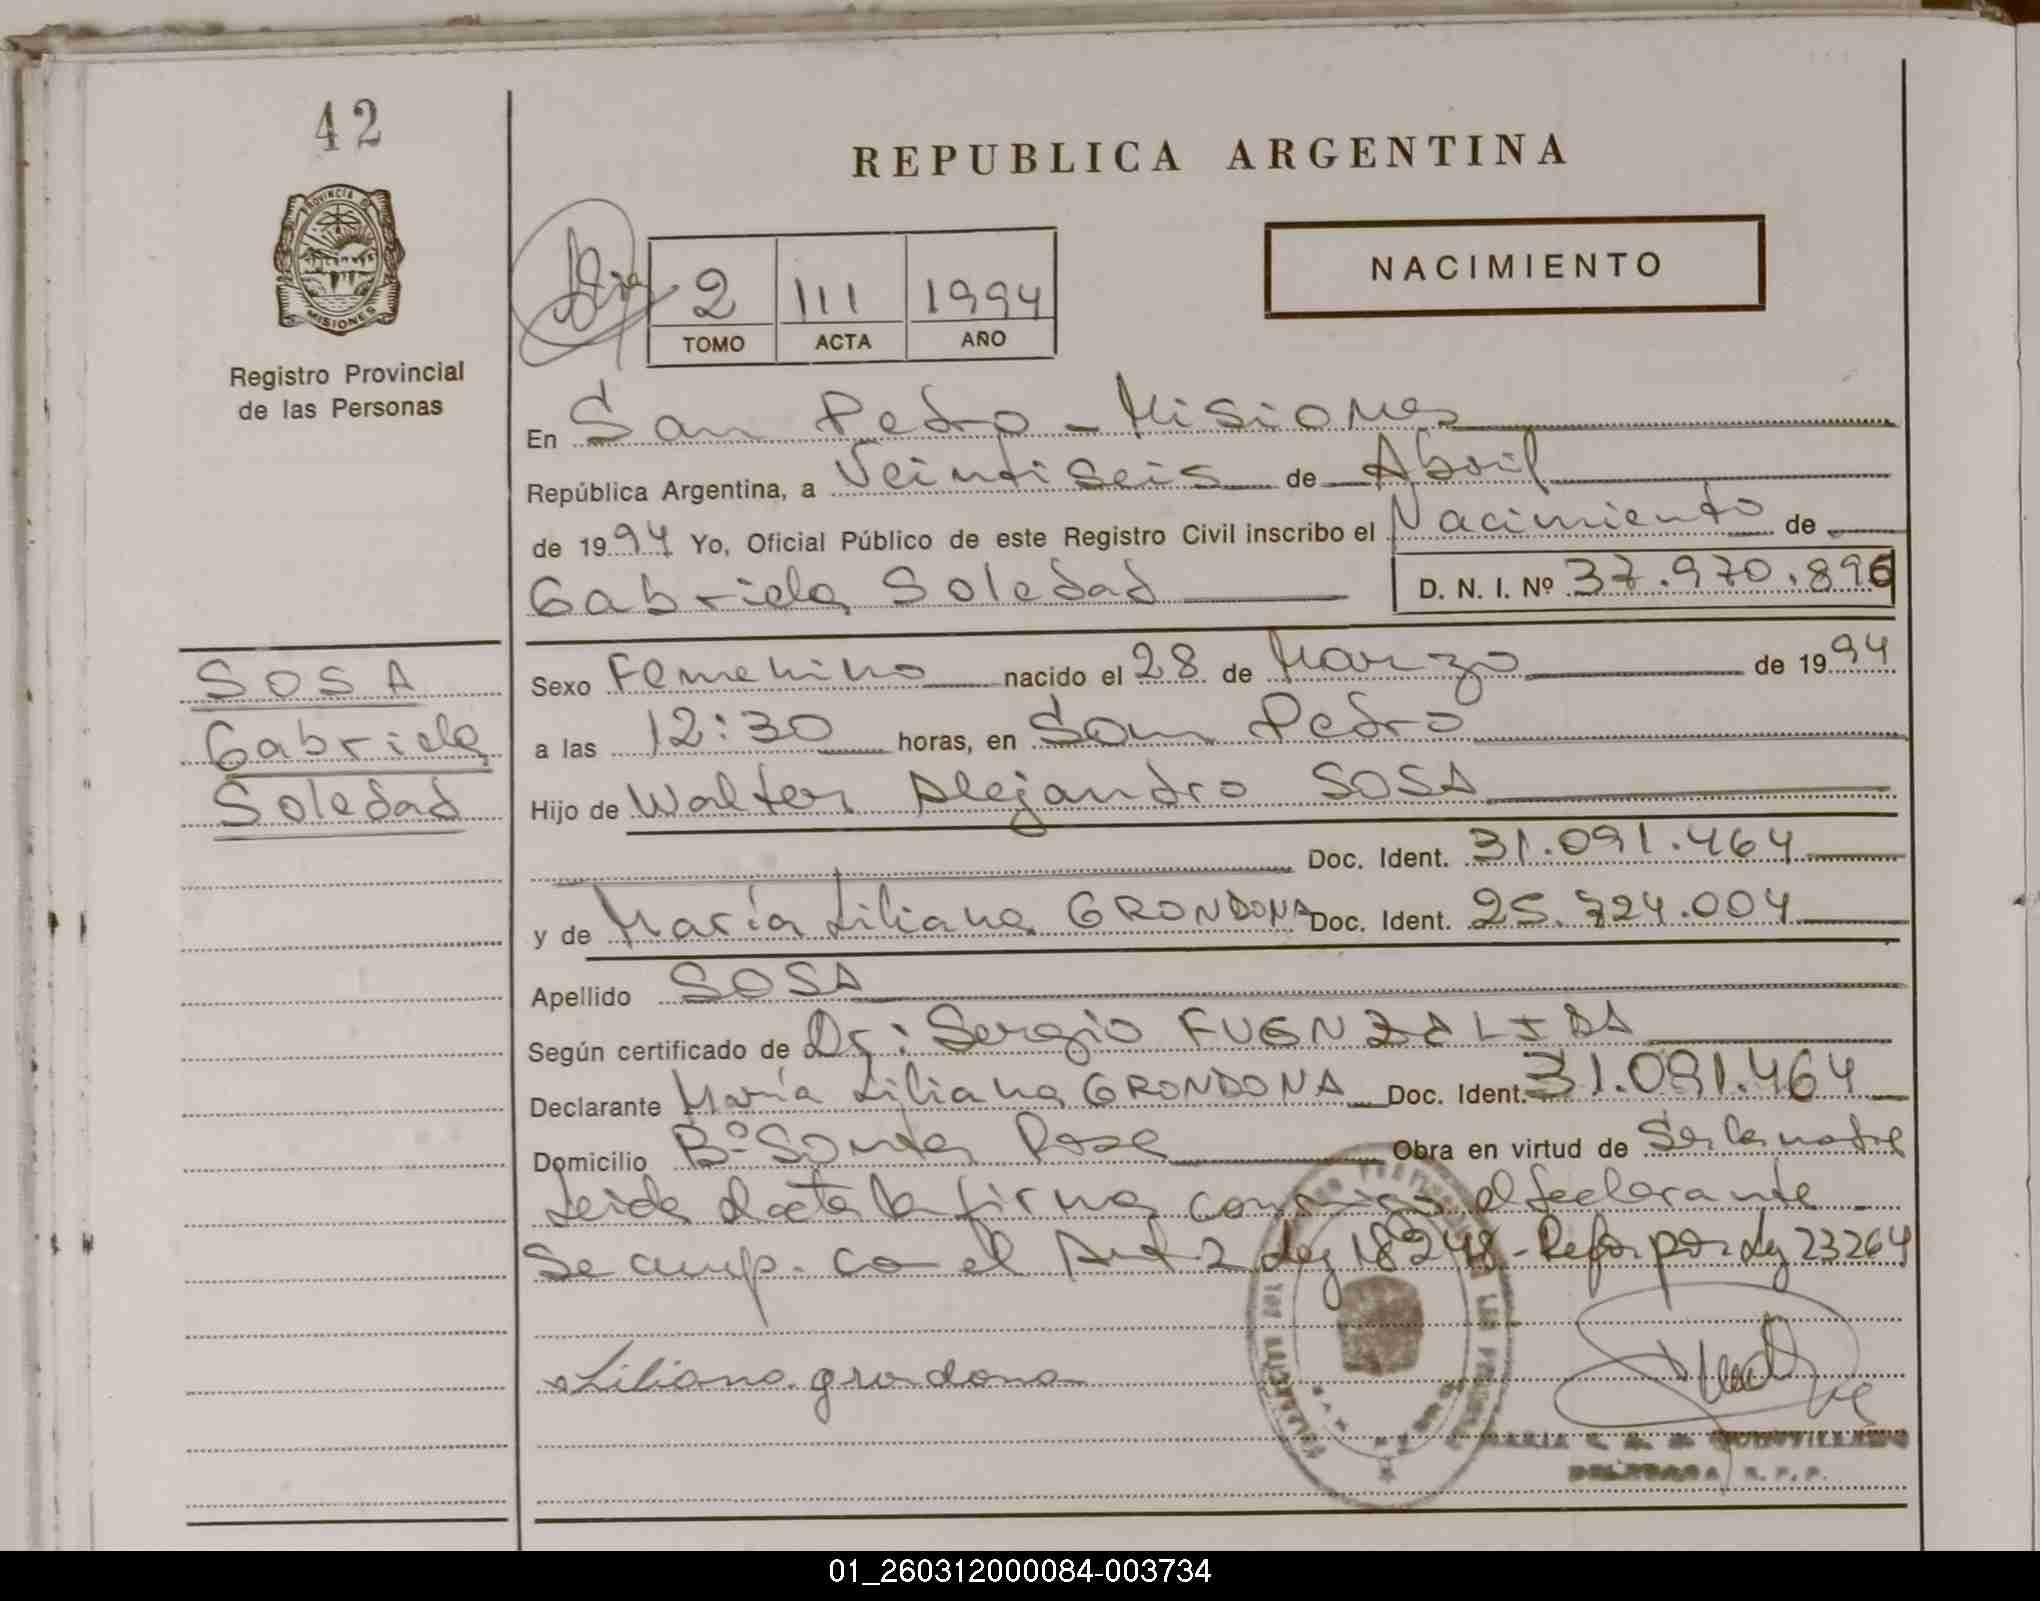 42
REPUBLICA ARGENTINA
PROVINCIA DE
MISIONES
Registro Provincial
de las Personas
NACIMIENTO
2 111 1994
TOMO ACTA AÑO
En San Pedro - Misiones
República Argentina, a Veintiseis de Abril
de 1994 Yo, Oficial Público de este Registro Civil inscribo el Nacimiento de
Gabriela Soledad D. N. I. Nº 37.970.896
SOSA
Gabriela
Soledad
Sexo Femenino nacido el 28 de Marzo de 1994
a las 12:30 horas, en San Pedro
Hijo de Walter Alejandro SOSA
Doc. Ident. 31.091.464
y de María Liliana GRONDONA Doc. Ident. 25.724.004
Apellido SOSA
Según certificado de Dr: Sergio FUENZALIDA
Declarante María Liliana GRONDONA Doc. Ident. 31.091.464
Domicilio Bº Santa Rosa Obra en virtud de Ser la madre
Leida el acta la firma conmigo el declarante
Se cump. con el Art 2 Ley 18248 - Refor por Ley 23264
Liliana grondona
MARIA
DELEGADA R.P.P.
01_260312000084-003734